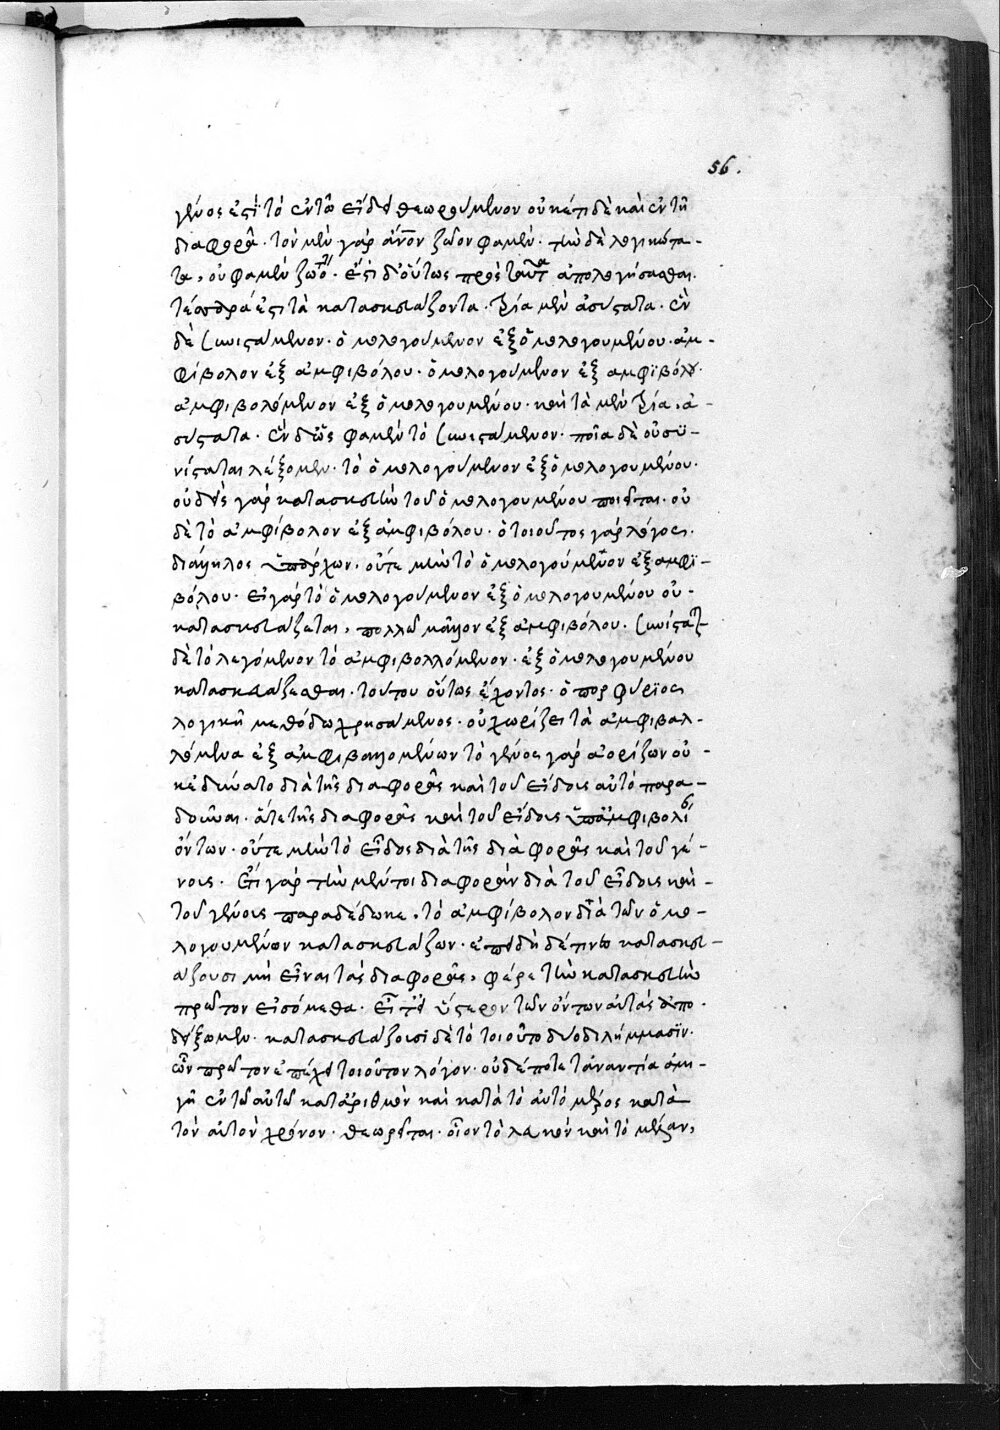 56.
γένος ἐστὶ τὸ ἐν τῶ εἴδει θεωρούμενον οὐκέτι δὲ καὶ ἐν τῆ
διαφορᾶ· τὸν μὲν γὰρ ἄνον ζῶον φαμέν· τὴν δὲ λογικότη-
τα, οὐ φαμὲν ζῶον· ἔστι δ' οὕτως πρὸς ταῦτα ἀπολογήσασθαι.
τέσσαρά ἐστι τὰ κατασκευάζοντα· τρία μὲν ἀσύστατα· ἓν
δὲ συνιστάμενον· ὁμολογούμενον ἐξ ὁμολογουμένου· ἀμ-
φίβολον ἐξ ἀμφιβόλου· ὁμολογούμενον ἐξ ἀμφϊβόλου·
ἀμφιβολόμενον ἐξ ὁμολογουμένου· καὶ τὰ μὲν τρία, ἀ-
σύστατα· ἓν δὲ ὥς φαμὲν τὸ συνιστάμενον· ποῖα δὲ οὐ συ-
νίσταται λέξομεν· τὸ ὁμολογούμενον ἐξ ὁμολογουμένου·
οὐδεὶς γὰρ κατασκευὴν τοῦ ὁμολογουμένου ποιεῖται· οὐ
δὲ τὸ ἀμφίβολον ἐξ ἀμφιβόλου· ὁ τοιοῦτος γὰρ λόγος
διάλληλος ὑπάρχων· οὔτε μὴν τὸ ὁμολογούμενον ἐξ ἀμφϊ-
βόλου· εἰ γὰρ τὸ ὁμολογούμενον ἐξ ὁμολογουμένου οὐ-
κατασκευάζεται, πολλῶ μᾶλλον ἐξ ἀμφιβόλου. συνίσταται
δὲ τὸ λεγόμενον τὸ ἀμφιβολλόμενον· ἐξ ὁμολογουμένου
κατασκευάζεσθαι· τούτου οὕτως ἔχοντος· ὁ πορφύριος
λογικῆ μεθόδω χρησάμενος· οὐ χωρίζει τὰ ἀμφιβαλ-
λόμενα ἐξ ἀμφιβαλλομένων τὸ γένος γὰρ ἀφορίζων οὐ-
κ ἐδύνατο διὰ τῆς διαφορᾶς καὶ τοῦ εἴδους αὐτὸ παρα-
δοῦναι· ἅτε τῆς διαφορᾶς καὶ τοῦ εἴδους ὑπ' ἀμφιβολί
ὄντων· οὔτε μὴν τὸ εἶδος διὰ τῆς διαφορᾶς καὶ τοῦ γέ-
νους· ἔτι γὰρ τὴν μέντοι διαφορὰν διὰ τοῦ εἴδους καὶ
τοῦ γένους παραδέδωκε, τὸ ἀμφίβολον διὰ τῶν ὁμο-
λογουμένων κατασκευάζων· ἐπειδὴ δέ τινες κατασκευ-
άζουσι μὴ εἶναι τὰς διαφορᾶς, φέρε τὴν κατασκευὴν
πρῶτον εἰσόμεθα· εἶτα ὕστερον τῶν ὄντων αὐτὰς ἀπο-
δείξωμεν· κατασκευάζουσι δὲ τὸ τοιοῦτο δυο διλήμμασϊν·
ὧν πρῶτον ἐπέχει τοιοῦτον λόγον· οὐδέποτε τἀναντία ἀμι-
γῆ ἐν τῶ αὐτῶ κατ' ἀριθμὸν καὶ κατὰ τὸ αὐτὸ μέρος κατὰ
τὸν αὐτὸν χρόνον· θεωρεῖται· οἷον τὸ λευκὸν καὶ τὸ μέλαν,